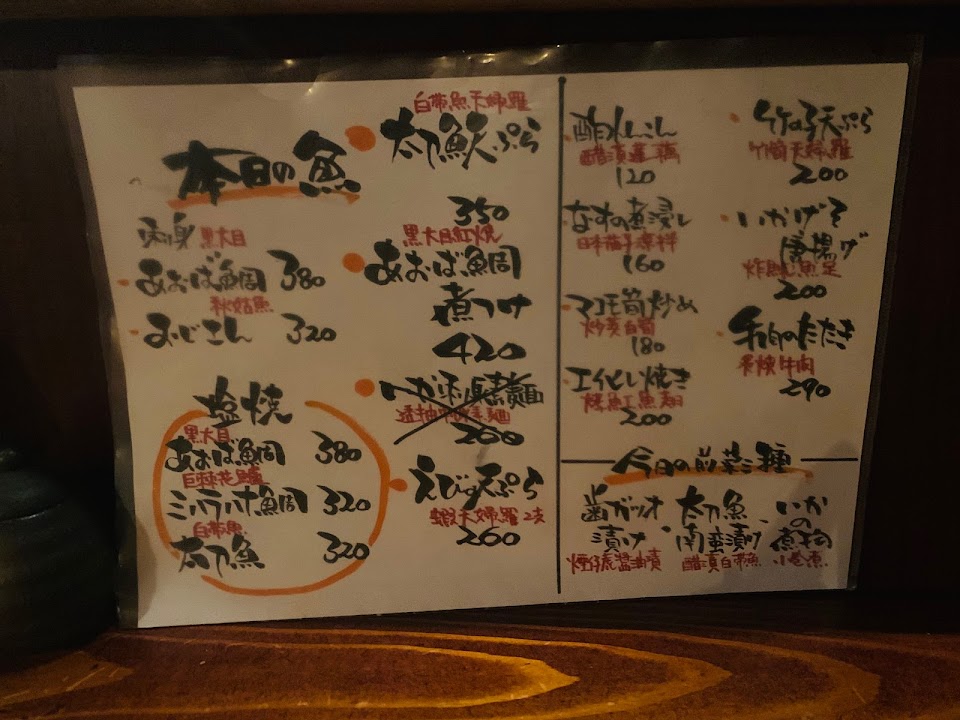 本日の魚
刺身 黒大目
あおば鯛 380
秋姑魚
おじさん 320
塩焼
黒大目
あおば鯛 380
巨棘花鱸
ミハラハナ鯛 320
白帯魚
太刀魚 320
白帯魚天婦羅
太刀魚天ぷら
350
黒大目紅焼
あおば鯛
煮つけ
420
いか
麺
260
えび天ぷら
蝦天婦羅 2支
260
酢れんこん
醋漬蓮藕
120
なすの煮浸し
日本茄子
160
マコモ筍炒め
炒茭白筍
180
エイひれ焼き
烤魟魚翅
200
竹の子天ぷら
竹筍天婦羅
200
いかげそ
唐揚げ
炸魷魚足
200
牛肉のたたき
炙焼牛肉
290
今日の前菜三種
歯ガツオ
漬け
煙仔虎醤油漬
太刀魚
南蛮漬け
醋漬白帯魚
いか
の
煮物
小卷煮